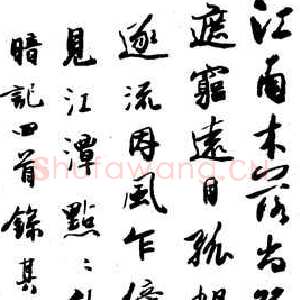 江南木落尚
遮窮遠目孤帆
逐流因風乍
見江潭點〻
暗記四首錄其
Shufawang.cn